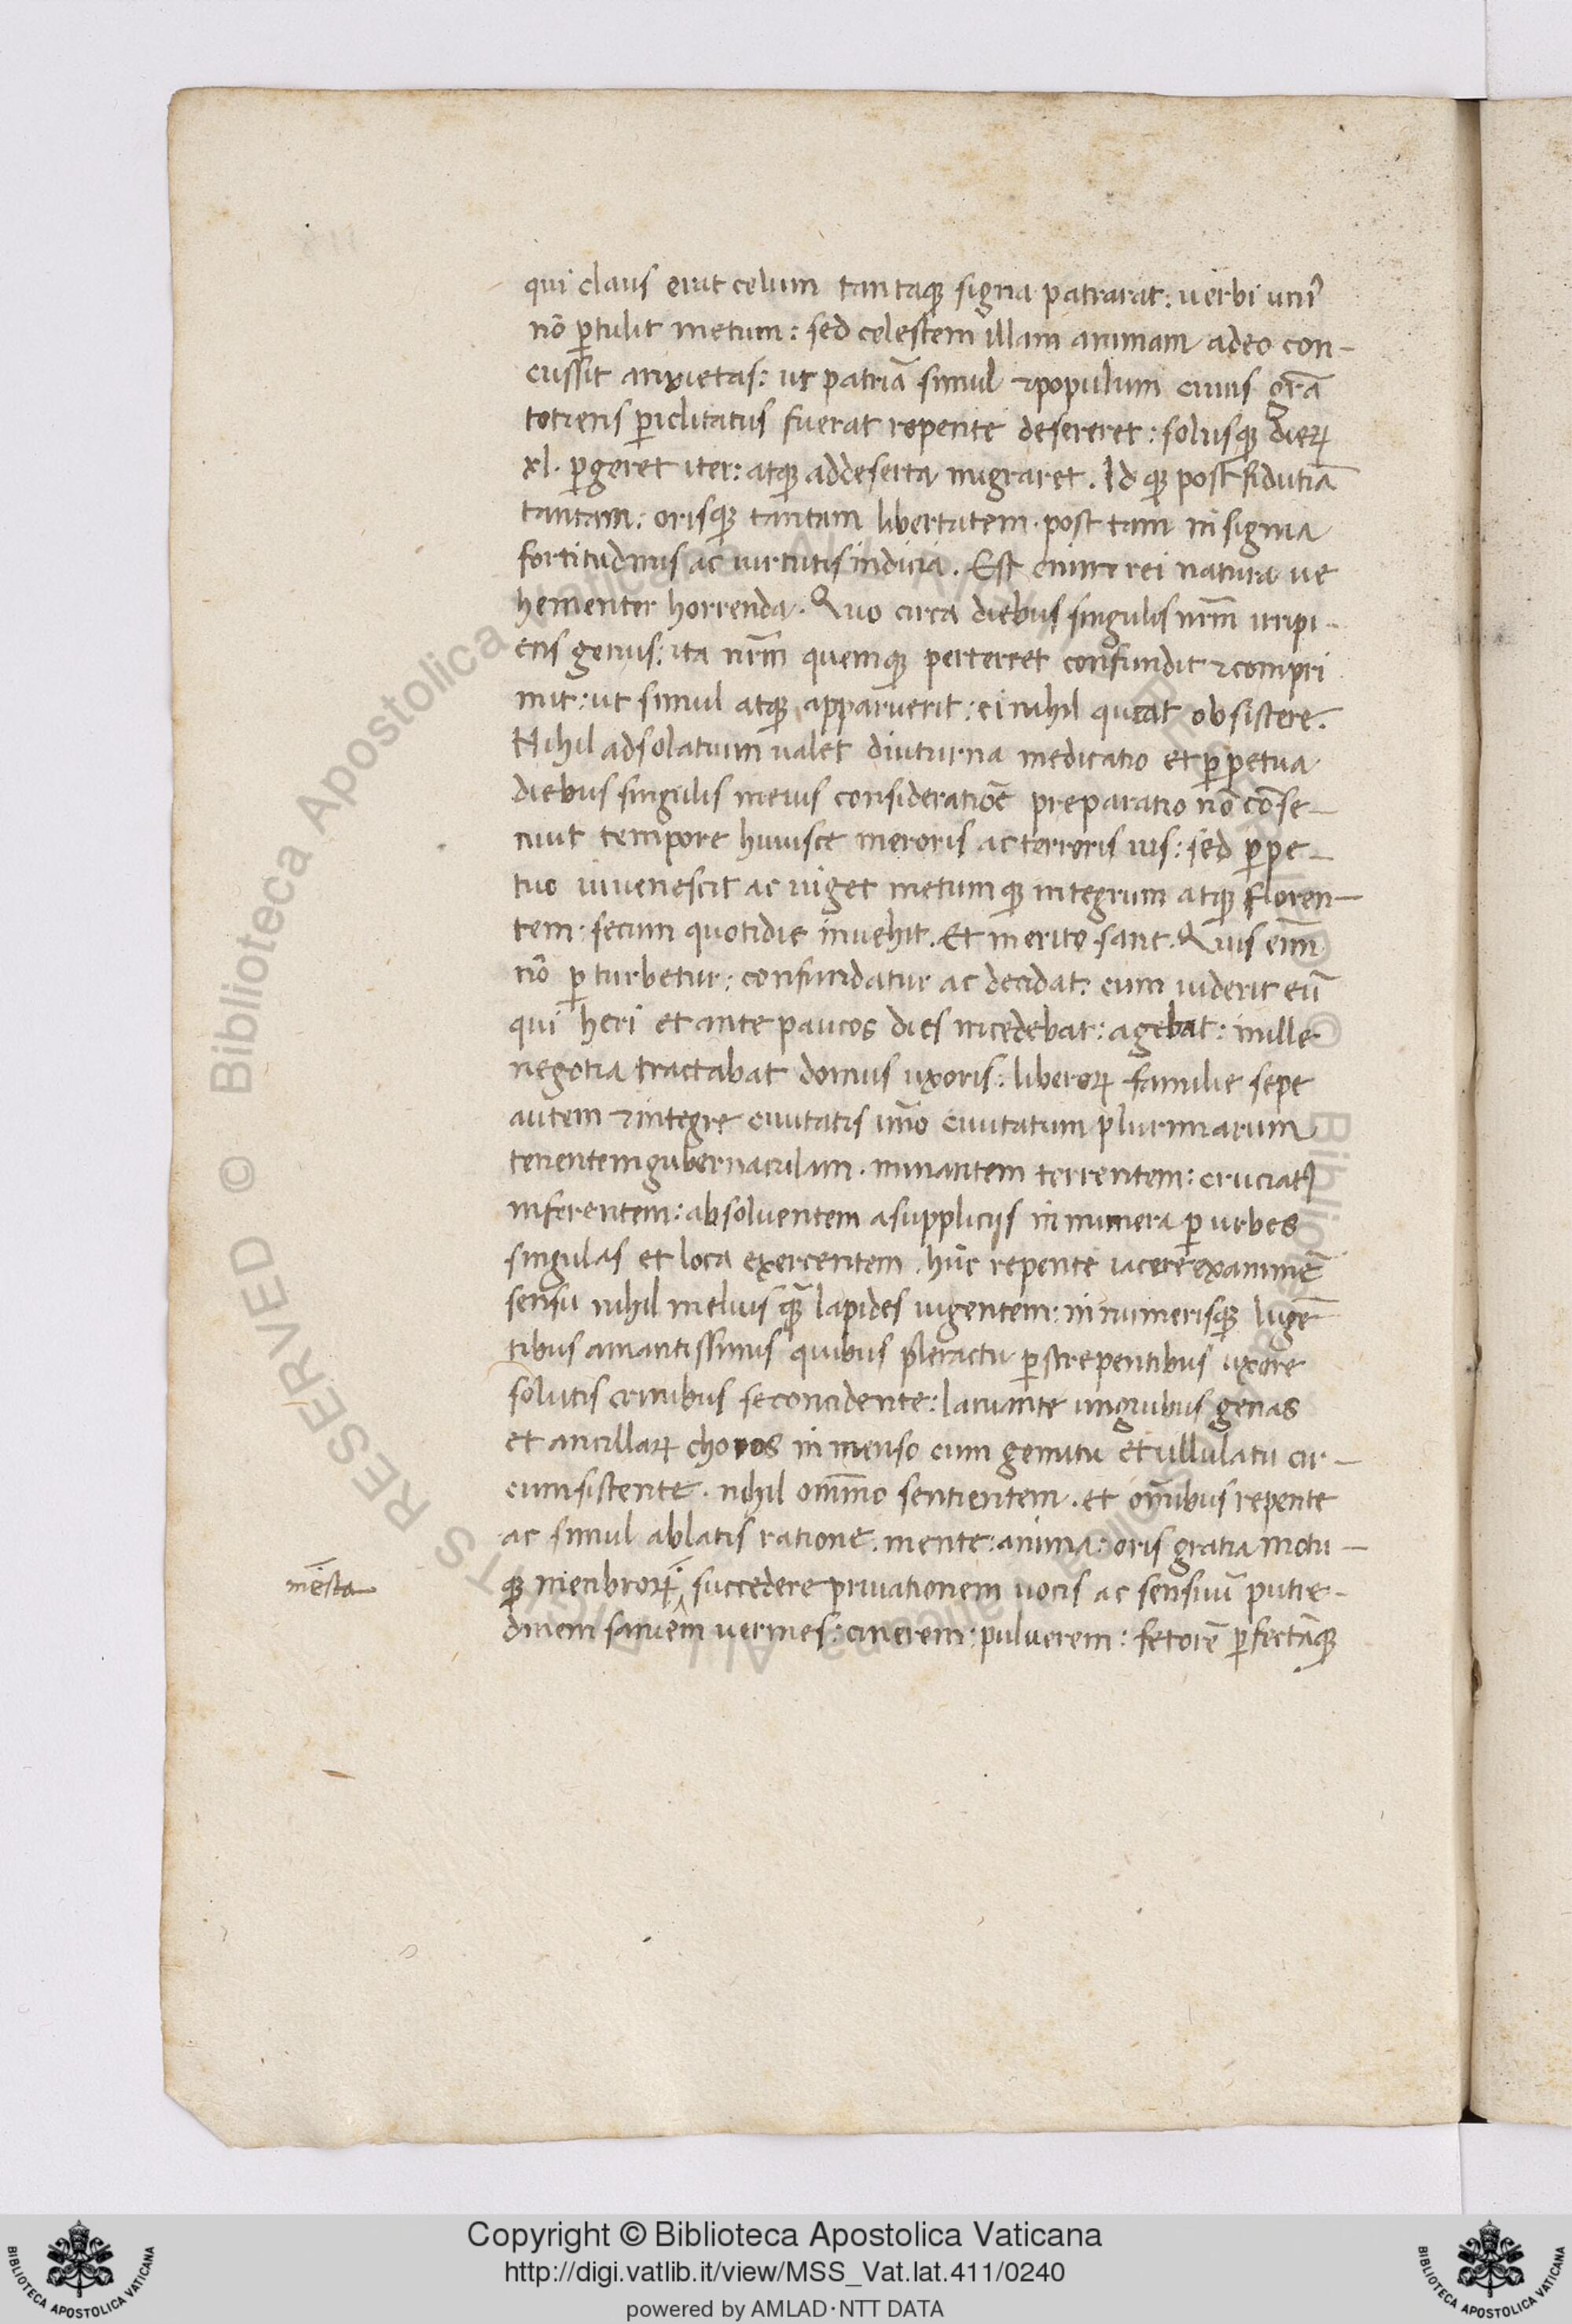 qui claus erut celum tantaqꝫ signa patrarat: uerbi uni᷒
nō ꝑtulit metum: sed celestem illam animam adeo con-
cussit anxietas: ut patriā simul ⁊populum cuius gr̄a
totiens ꝑiclitatus fuerat repente desereret: solusqꝫ dieꝝ
xl. ꝑgeret iter: atqꝫ addeserta migraret. Id qꝫ post fidutiā
tantam: orisqꝫ tantam libertatem. post tam insignia
fortitudinis ac uirtutis indicia. Est enim rei natura ue
hementer horrenda. Quo circa diebus singulis nr̄m irripi-
ens genus: ita nr̄m quemqꝫ perterret confundit ⁊compri
mit: ut simul atqꝫ apparuerit: ei nihil queat obsistere.
Nihil adsolatium ualet diuturna meditatio et ꝑpetua
diebus singulis meius consideratiōe preparatio nō cōse-
nuit tempore huiusce meroris ac terroris uis: sed ꝑpe-
tuo iuuenescit ac uiget metum qꝫ integrum atqꝫ floren-
tem. secum quotidie inuehit. Et merito sane. Quis eni͞m
nō ꝑturbetur: confundatur ac decidat: cum uiderit eū
qui heri et ante paucos dies incedebat: agebat: mille
negotia tractabat domus uxoris: liberoꝝ familie sepe
autem ⁊integre ciuitatis īmo ciuitatum plurimarum
tenentem gubernaculam. minantem terrentem: cruciatꝰ
inferentem: absoluentem a supplicijs innumera ꝑ urbes
singulas et loca exercentem. hūc repente iacere exanimē
sensu nihil melius qꝫ̄ lapides uigentem: innumerisqꝫ lugē
tibus amantissimis quibus ꝑstrepentibus uxore
solutis crinibus se concidente: laniante unguibus genas
et ancillaꝝ choros in menso cum gemitu et ullulatu cir-
cumsistente. nihil om̄ino sentientem. et om̄ibus repente
ac simul ablatis ratione. mente: anima: oris gratia motu-
mēsta
qꝫ membroꝝ: succedere priuationem uocis ac sensuū putre-
dinem saniem uermes: cinerem: puluerem: fetorē ꝑfectāqꝫ
Copyright © Biblioteca Apostolica Vaticana
http://digi.vatlib.it/view/MSS_Vat.lat.411/0240
powered by AMLAD·NTT DATA